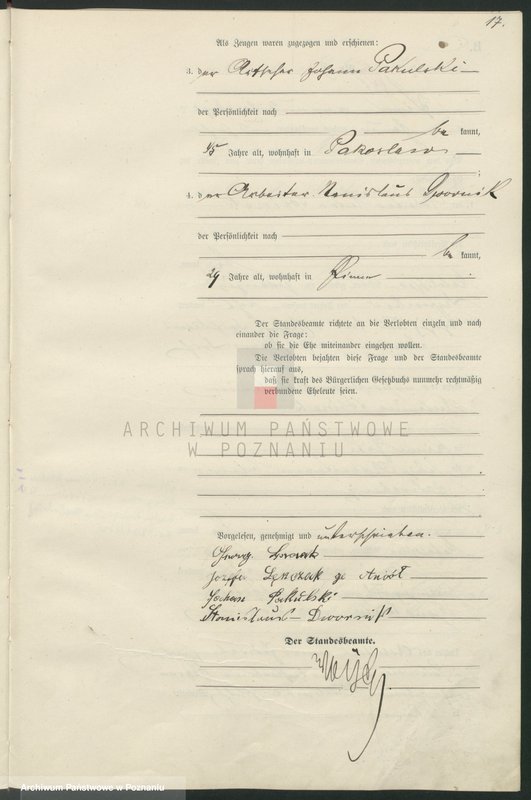 17.
Als Zeugen waren zugezogen und erschienen:
3. der Johann Pakulski
der Persönlichkeit nach
be kannt,
45 Jahre alt, wohnhaft in Pakoslaw
4. der Arbeiter Stanislaus Dwornik
der Persönlichkeit nach
be kannt,
29 Jahre alt, wohnhaft in Pinne
Der Standesbeamte richtete an die Verlobten einzeln und nach
einander die Frage:
ob sie die Ehe miteinander eingehen wollen.
Die Verlobten bejahten diese Frage und der Standesbeamte
sprach hierauf aus,
daß sie kraft des Bürgerlichen Gesetzbuchs nunmehr rechtmäßig
verbundene Eheleute seien.
ARCHIWUM PAŃSTWOWE
W POZNANIU
Vorgelesen, genehmigt und unterschrieben.
Józefa ge Anioł
Johann Pakulski
Stanislaus Dwornik
Der Standesbeamte.
Archiwum Państwowe w Poznaniu